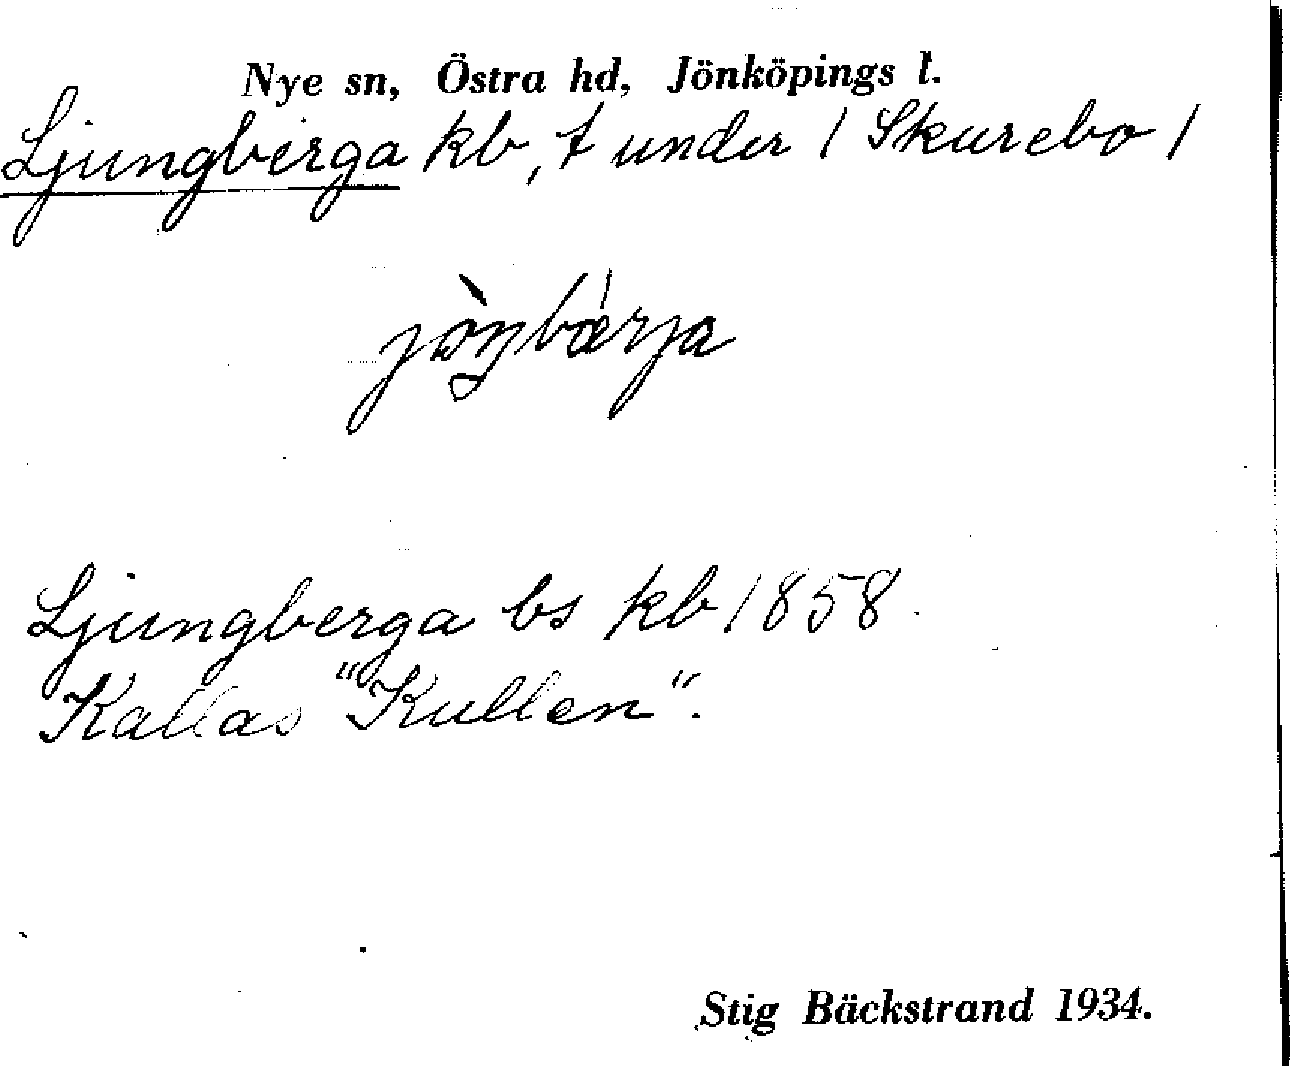 Nye sn, Östra hd, Jönköpings l.
Ljungberga kb, t under / Skurebo /
jòŋbǽrja
Ljungberga bs kb 1858.
Kallas "Kullen".
Stig Bäckstrand 1934.